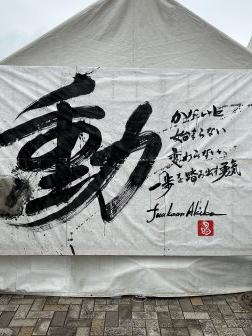 動
かないと
始まらない
変わらない。
一歩を踏み出す勇気